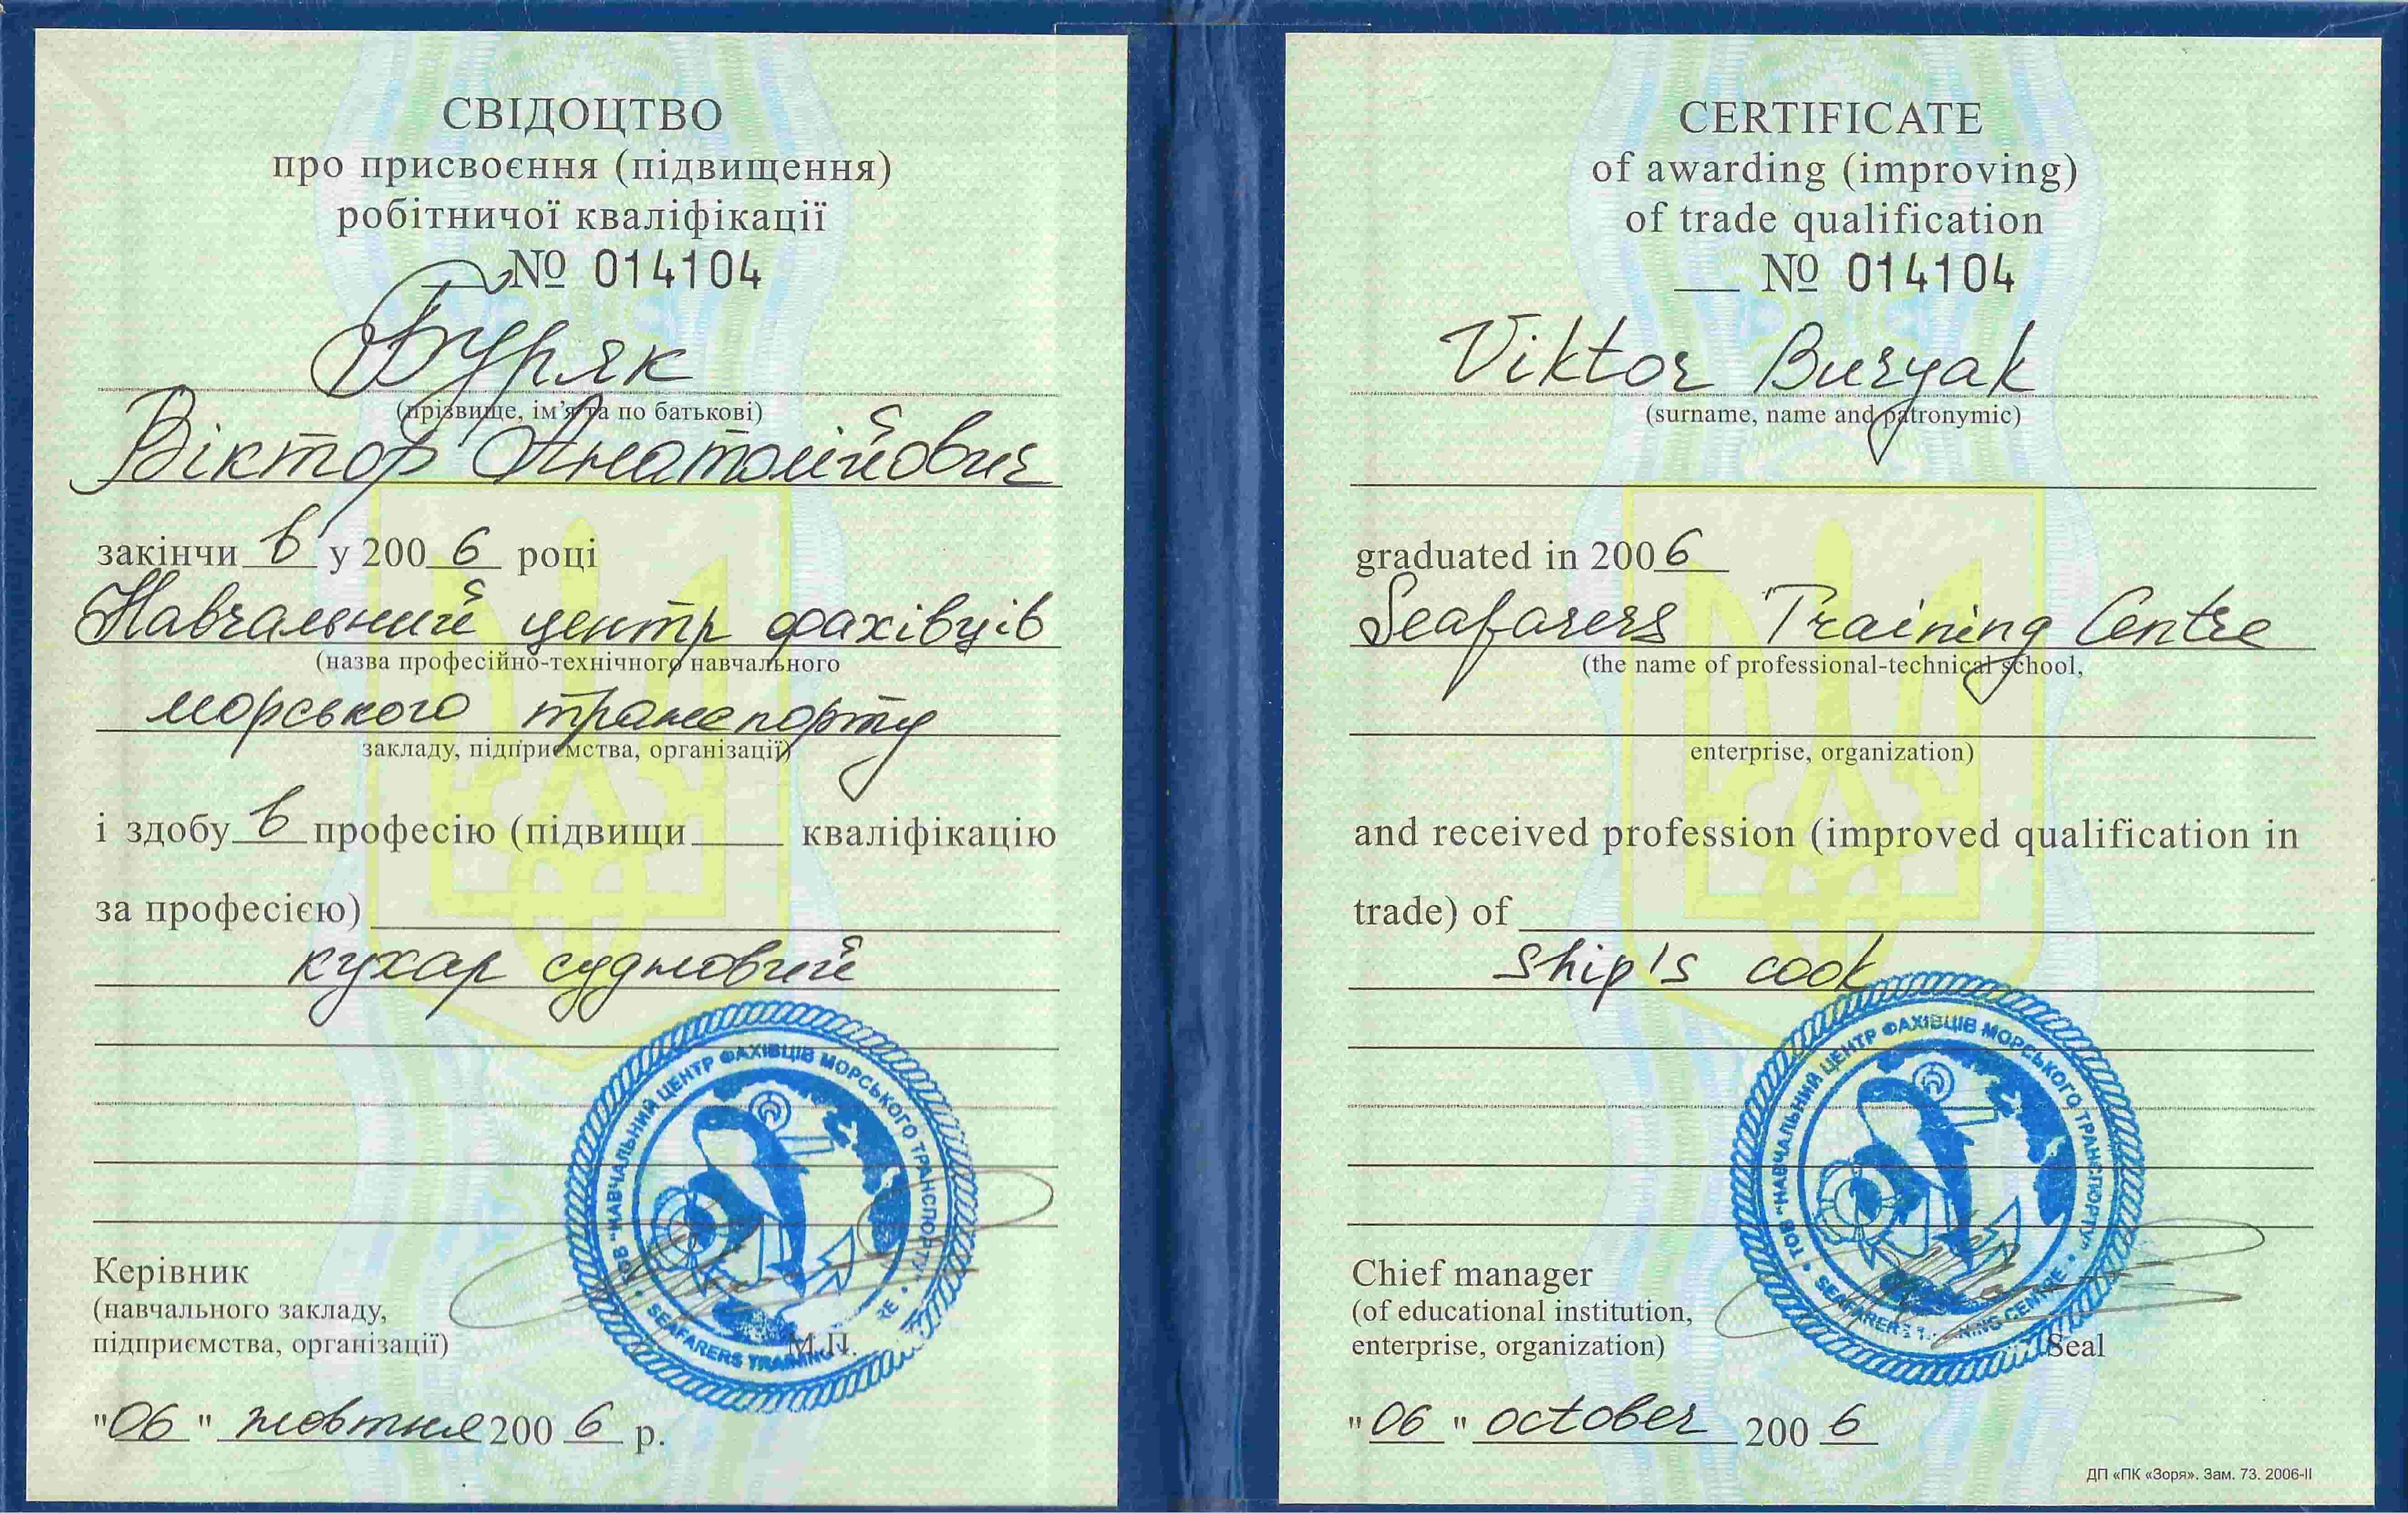 СВІДОЦТВО
про присвоєння (підвищення)
робітничої кваліфікації
№ 014104
Буряк
(прізвище, ім’я та по батькові)
Віктор Анатолійович
закінчи в у 200 6 році
Навчальний центр фахівців
(назва професійно-технічного навчального
морського транспорту
закладу, підприємства, організації)
і здобу в професію (підвищи____ кваліфікацію
за професією)
кухар судновий
ТОВ "НАВЧАЛЬНИЙ ЦЕНТР ФАХІВЦІВ МОРСЬКОГО ТРАНСПОРТУ"
SEAFARERS TRAINING
Керівник
(навчального закладу,
підприємства, організації)
М.П.
"06" жовтня 200 6 р.
CERTIFICATE
of awarding (improving)
of trade qualification
№ 014104
Viktor Buryak
(surname, name and patronymic)
graduated in 2006
Seafarers Training Centre
(the name of professional-technical school,
enterprise, organization)
and received profession (improved qualification in
trade) of
ship's cook
ТОВ "НАВЧАЛЬНИЙ ЦЕНТР ФАХІВЦІВ МОРСЬКОГО ТРАНСПОРТУ"
SEAFARERS CENTRE
Chief manager
(of educational institution,
enterprise, organization)
Seal
"06" october 200 6
ДП «ПК «Зоря». Зам. 73. 2006-II